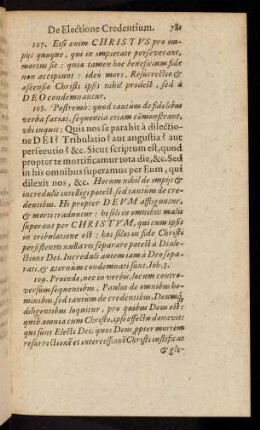 De Electione Credentium. 781
107. Etsi enim CHRISTVS pro im-
piis quoque, qui in impietate perseverant,
mortuus sit: quia tamen hoc beneficium fide
non accipiunt: ideo mors, Resurrectio &
ascensio Christi ipsis nihil prodest, sed à
DEO condemnantur.
108. Postremò: quod tantùm de fidelibus
verba faciat, sequentia etiam cōmonstrant,
vbi inquit: Quis nos separabit à dilectio-
ne DEI? Tribulatio? aut angustia? aut
persecutio? &c. Sicut scriptum est, quod
propter te mortificamur tota die, &c. Sed
in his omnibus superamus per Eum, qui
dilexit nos, &c. Horum nihil de impiis &
incredulis intelligi potest, sed tantùm de cre-
dentibus. Hi propter DEVM affliguntur,
& morti traduntur: hi soli in omnibus malis
superant per CHRISTVM, qui cum ipsis
in tribulatione est: hos solos in fide Christi
persistentes nulla res separare potest à Diale-
ctione Dei. Increduli autem iam à Deo sepa-
rati, & æternùm condemnati sunt, Ioh. 3.
109. Proinde, nec in verbis, locum contro-
versum sequentibus, Paulus de omnibus ho-
minibus sed tantùm de credentibus, Deumq́;
diligentibus loquitur, pro quibus Deum est:
quib. omnia cum Christo, ipso effectu donavit:
qui sunt Electi Dei: quos Deus, ppter mortem
resurrectionē et intercessionē Christi iustificat
& glo-